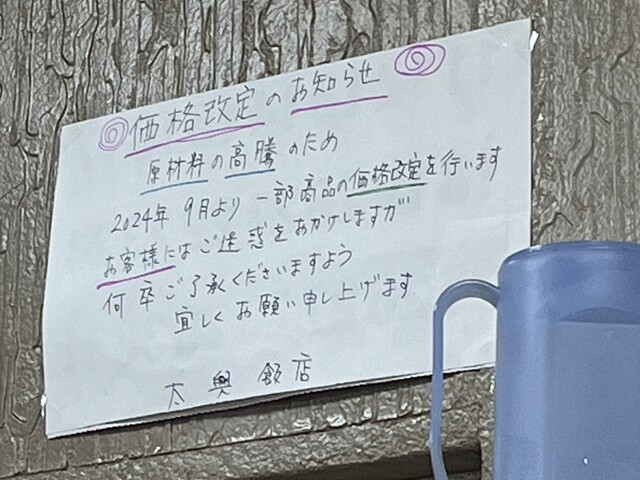 ◎価格改定のお知らせ◎
原材料の高騰のため
2024年 9月より 一部商品の価格改定を行います
お客様にはご迷惑をおかけしますが
何卒ご了承くださいますよう
宜しくお願い申し上げます
太興飯店